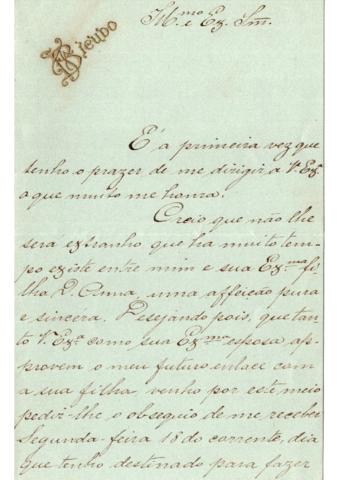 Bicudo
Illmo e Ex. Snr.
É a primeira vez que
tenho o prazer de me dirigir á V. Exª
o que muito me honra.
Creio que não lhe
será extranho que ha muito tem-
po existe entre mim e sua Exma fi-
lha, D. Anna uma affeição pura
e sincera. Desejando pois, que tan-
to V. Exª como sua Exma esposa, ap-
provem o meu futuro enlace com
a sua filha venho por este meio
pedir-lhe o obsequio de me receber
Segunda-feira 18 do corrente, dia
que tenho destinado para fazer